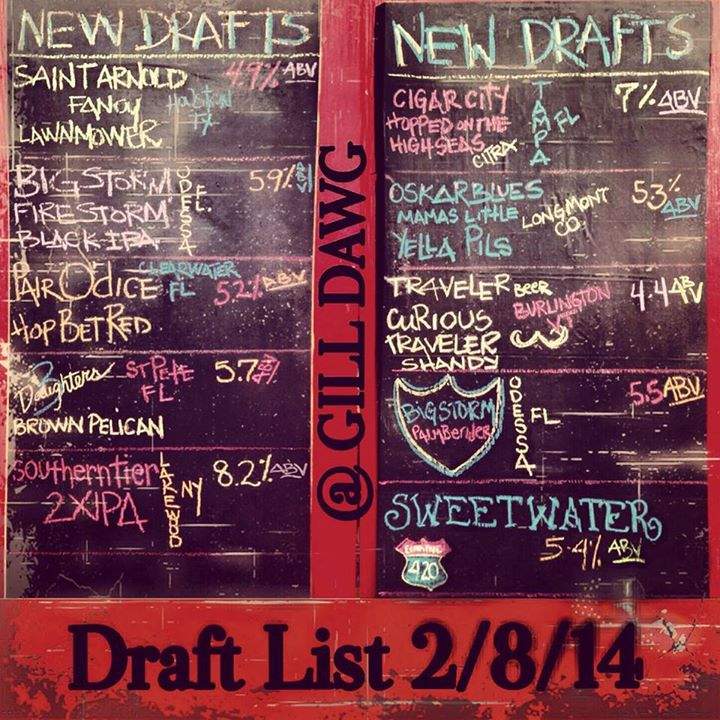 NEW DRAFTS
SAINT ARNOLD 4.9% ABV
FANCY HOUSTON
LAWNMOWER TX
BIG STORM ODESSA FL. 5.9% ABV
FIRESTORM
BLACK IPA
PAIR O DICE CLEARWATER FL 5.2% ABV
HOP BET RED
3 Daughters ST PETE FL 5.7% ABV
BROWN PELICAN
Southern Tier LAKEWOOD NY 8.2% ABV
2XIPA
NEW DRAFTS
CIGAR CITY TAMPA FL 7% ABV
HOPPED ON THE
HIGH SEAS CITRA
OSKAR BLUES LONGMONT CO. 5.3% ABV
MAMAS LITTLE
YELLA PILS
TRAVELER BEER BURLINGTON VT 4.4 ABV
CURIOUS
TRAVELER
SHANDY
BIG STORM ODESSA FL 5.5 ABV
PALM Bender
SWEETWATER
420 5.4% ABV
@ GILL DAWG
Draft List 2/8/14